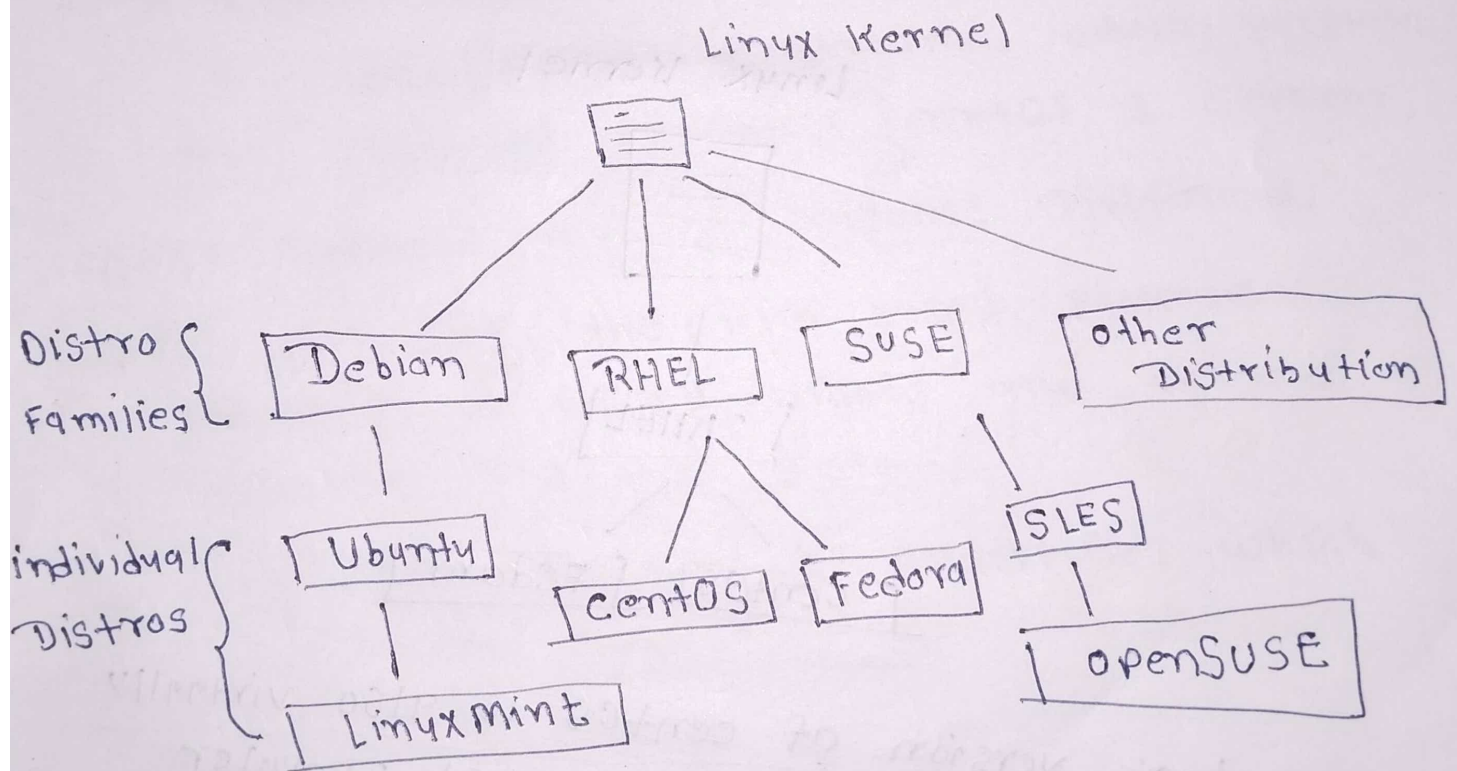 Linux Kernel
Distro
Families
Debian
RHEL
SUSE
other
Distribution
individual
Distros
Ubuntu
CentOS
Fedora
SLES
Linux Mint
openSUSE